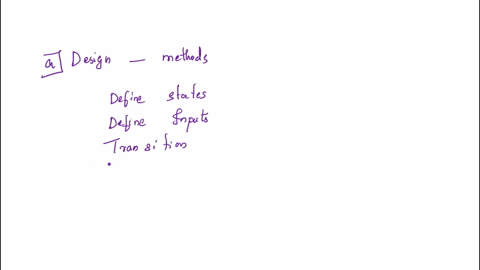 a Design — methods
Define states
Define Inputs
Transition